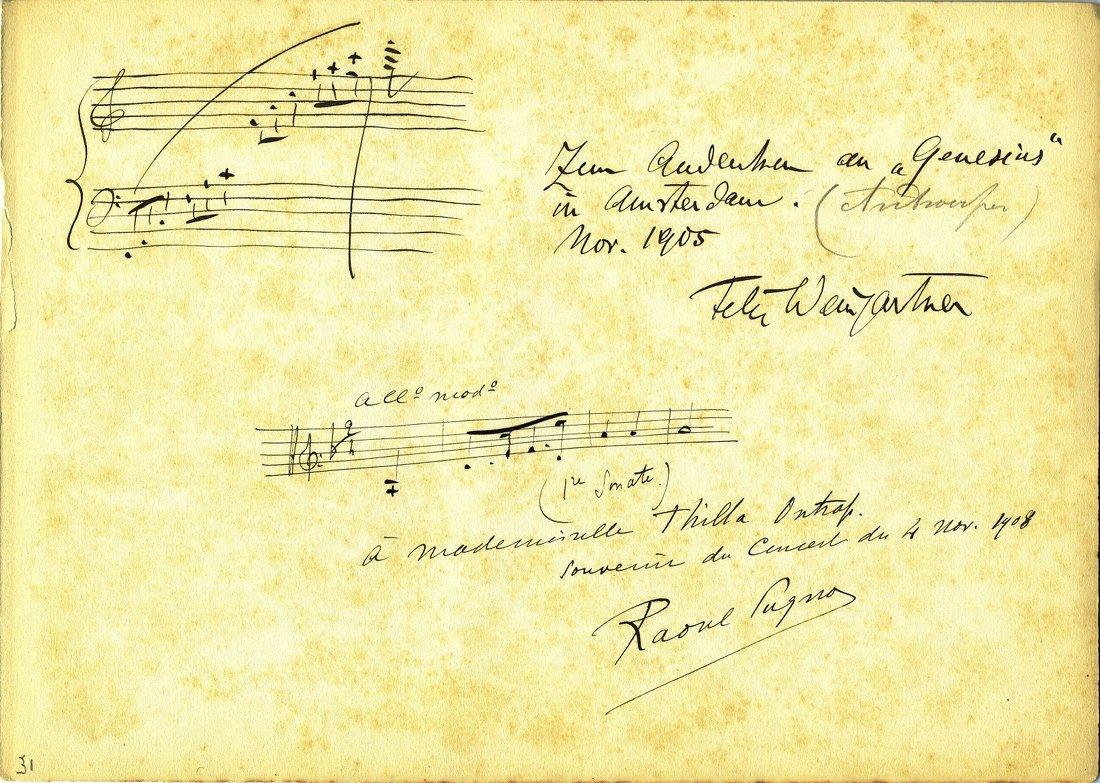 Zum Andenken an „Genesius“
in Amsterdam. (Antwerpen)
Nov. 1905
Felix Weingartner
Allº modº
(1re Sonate.)
à Mademoiselle Thilla Ontrop.
Souvenir du Concert du 4 Nov. 1908
Raoul Pugno
31